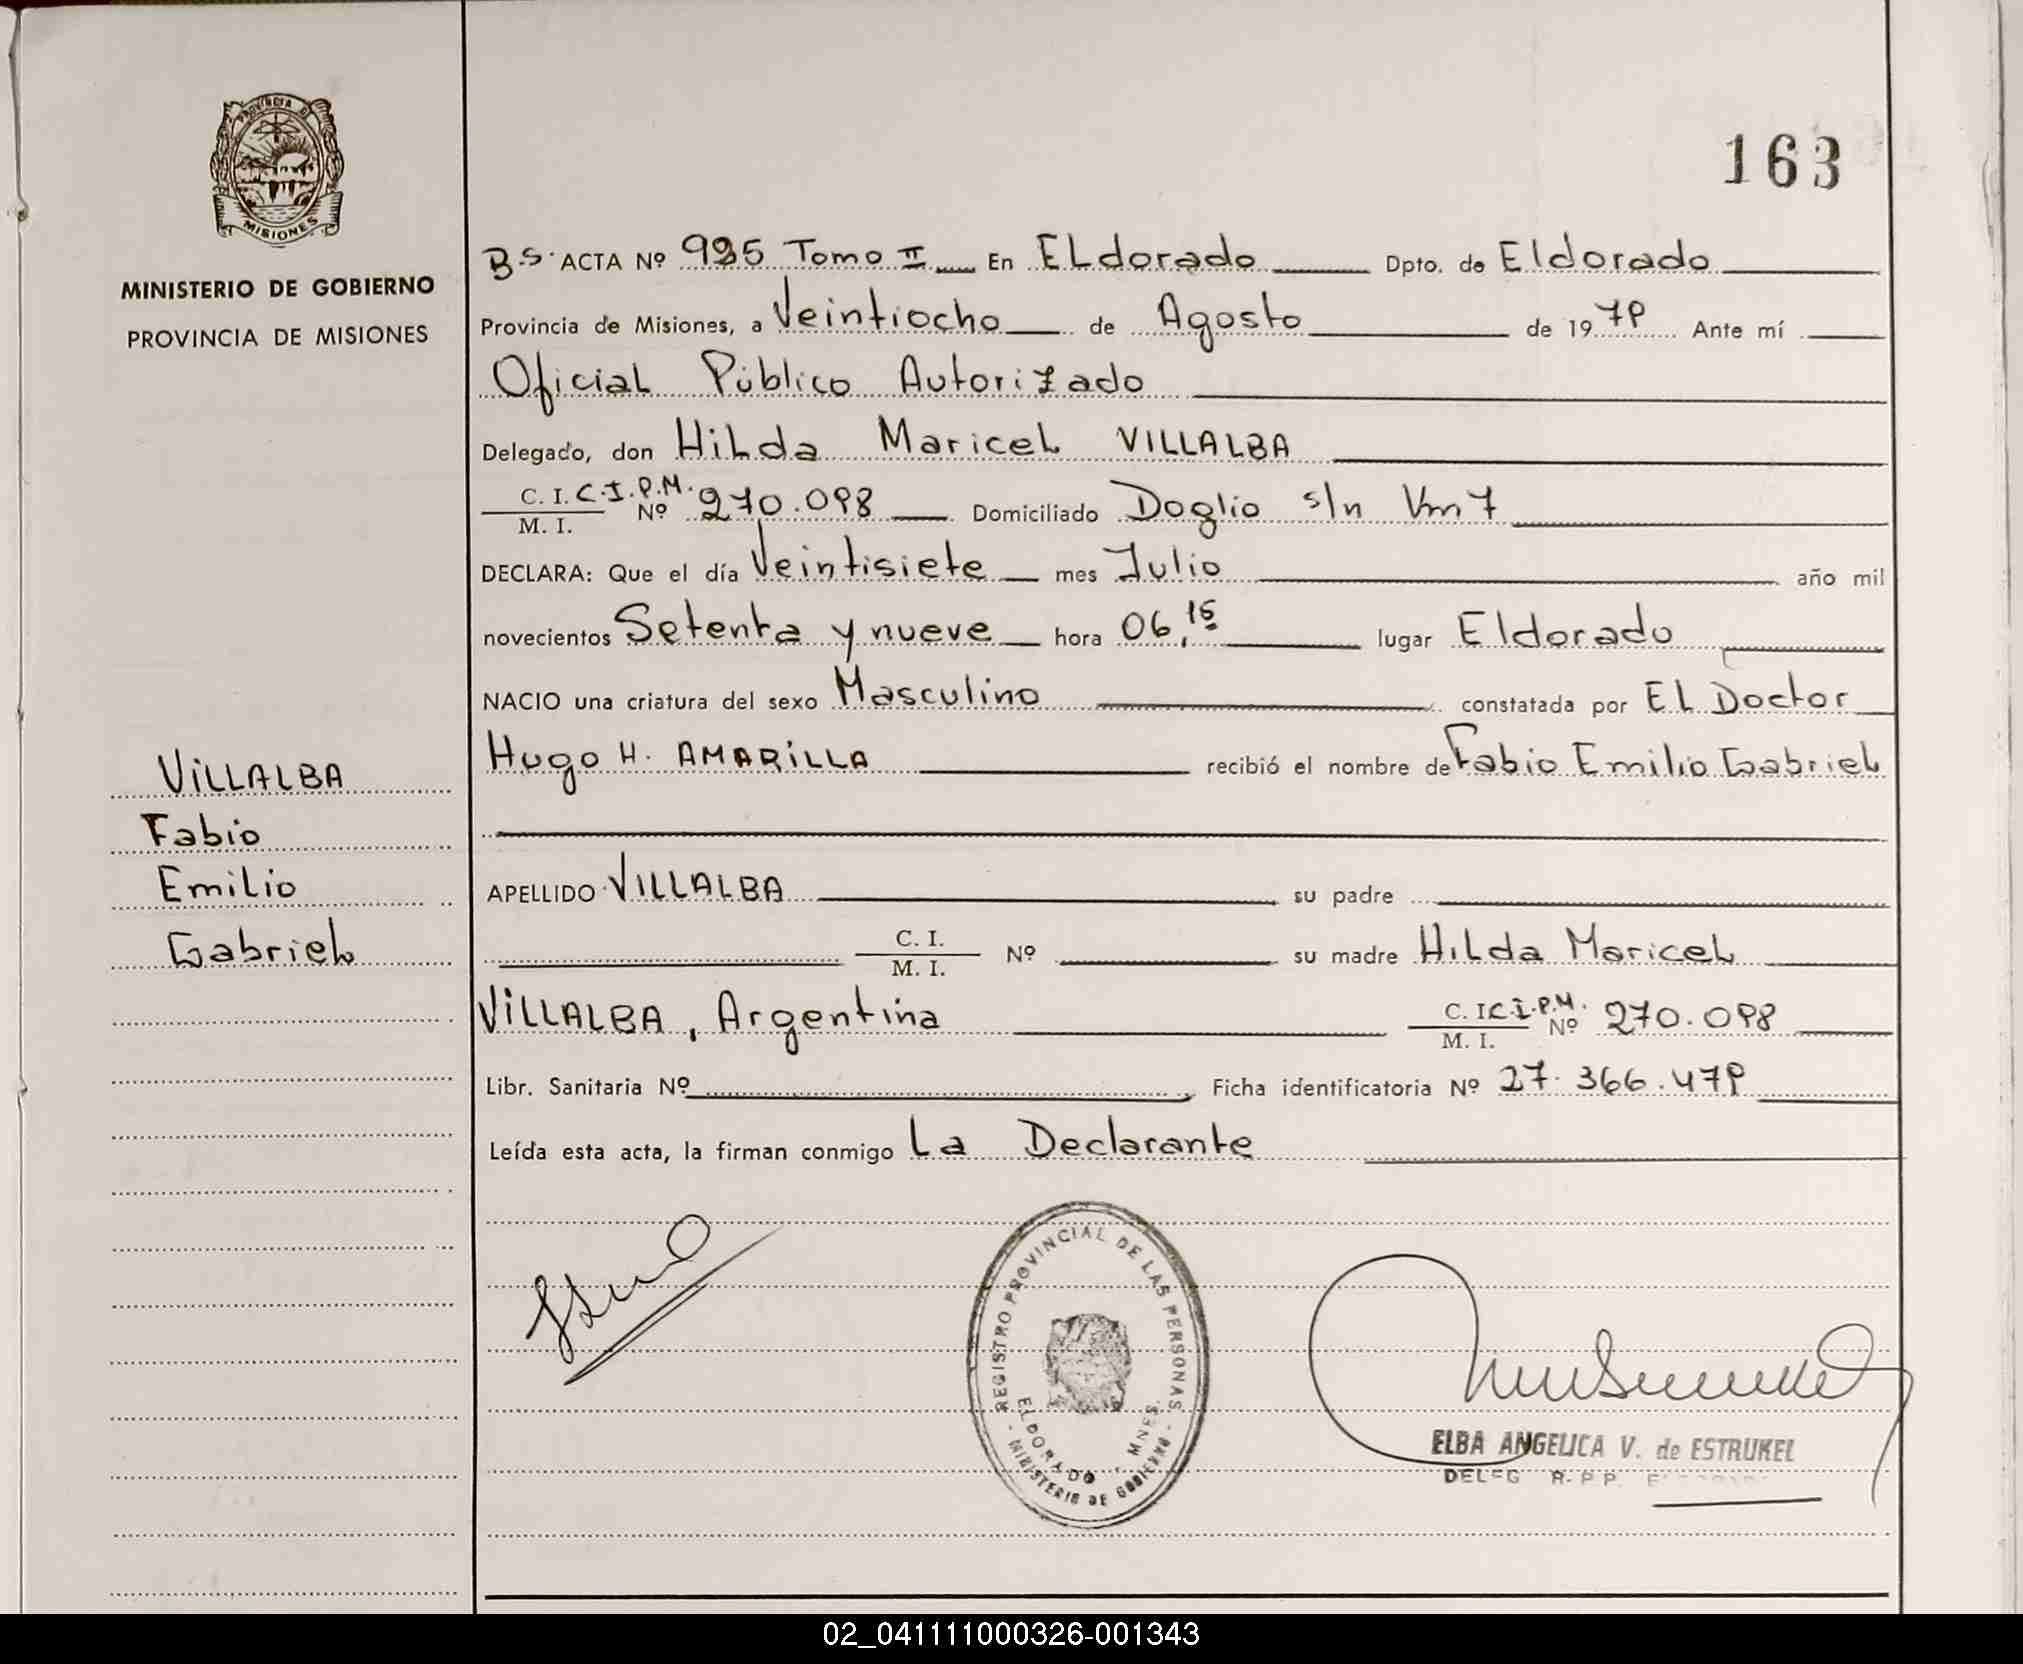 PROVINCIA DE
MISIONES
MINISTERIO DE GOBIERNO
PROVINCIA DE MISIONES
163
B.S. ACTA Nº 995 Tomo II En ELdorado Dpto. de Eldorado
Provincia de Misiones, a Veintiocho de Agosto de 1979 Ante mí
Oficial Público Autorizado
Delegado, don Hilda Maricel VILLALBA
C. I. C.I.P.M.
M. I. Nº 270.098 Domiciliado Doglio s/n Km 7
DECLARA: Que el día Veintisiete mes Julio año mil
novecientos Setenta y nueve hora 06,15 lugar Eldorado
NACIO una criatura del sexo Masculino constatada por El Doctor
Hugo H. AMARILLA recibió el nombre de Fabio Emilio Gabriel
APELLIDO VILLALBA su padre
C. I.
M. I. Nº su madre Hilda Maricel
VILLALBA, Argentina C. I. C.I.P.M.
M. I. Nº 270.098
Libr. Sanitaria Nº Ficha identificatoria Nº 27.366.479
Leída esta acta, la firman conmigo La Declarante
VILLALBA
Fabio
Emilio
Gabriel
REGISTRO PROVINCIAL DE LAS PERSONAS
ELDORADO - MNES.
- MINISTERIO DE GOBIERNO -
ELBA ANGELICA V. de ESTRUKEL
DELEG R.P.P.
02_041111000326-001343